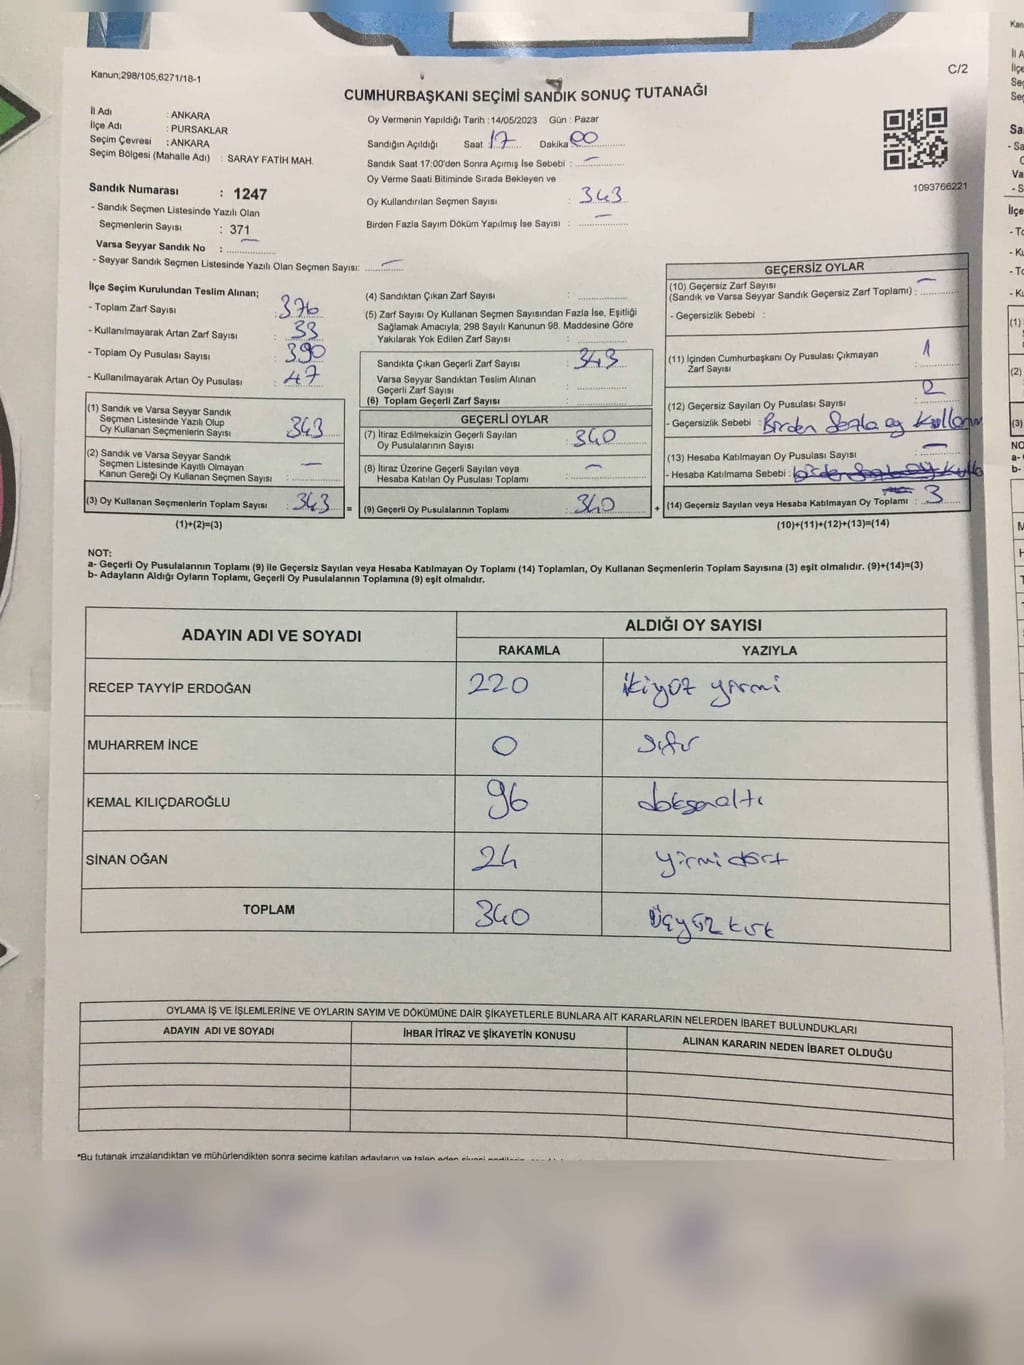 Kanun;298/105,6271/18-1
C/2
CUMHURBAŞKANI SEÇİMİ SANDIK SONUÇ TUTANAĞI
İl Adı : ANKARA
İlçe Adı : PURSAKLAR
Seçim Çevresi : ANKARA
Seçim Bölgesi (Mahalle Adı) : SARAY FATİH MAH.
Sandık Numarası : 1247
- Sandık Seçmen Listesinde Yazılı Olan
Seçmenlerin Sayısı : 371
Varsa Seyyar Sandık No : —
- Seyyar Sandık Seçmen Listesinde Yazılı Olan Seçmen Sayısı: —
Oy Vermenin Yapıldığı Tarih : 14/05/2023 Gün : Pazar
Sandığın Açıldığı Saat : 17 Dakika 00
Sandık Saat 17:00'den Sonra Açımış İse Sebebi : —
Oy Verme Saati Bitiminde Sırada Bekleyen ve
Oy Kullandırılan Seçmen Sayısı : 343
Birden Fazla Sayım Döküm Yapılmış İse Sayısı : —
1093766221
İlçe Seçim Kurulundan Teslim Alınan;
- Toplam Zarf Sayısı : 376
- Kullanılmayarak Artan Zarf Sayısı : 33
- Toplam Oy Pusulası Sayısı : 390
- Kullanılmayarak Artan Oy Pusulası : 47
(1) Sandık ve Varsa Seyyar Sandık
Seçmen Listesinde Yazılı Olup
Oy Kullanan Seçmenlerin Sayısı : 343
(2) Sandık ve Varsa Seyyar Sandık
Seçmen Listesinde Kayıtlı Olmayan
Kanun Gereği Oy Kullanan Seçmen Sayısı : —
(3) Oy Kullanan Seçmenlerin Toplam Sayısı : 343 =
(1)+(2)=(3)
(4) Sandıktan Çıkan Zarf Sayısı :
(5) Zarf Sayısı Oy Kullanan Seçmen Sayısından Fazla İse, Eşitliği
Sağlamak Amacıyla; 298 Sayılı Kanunun 98. Maddesine Göre
Yakılarak Yok Edilen Zarf Sayısı :
Sandıkta Çıkan Geçerli Zarf Sayısı : 343
Varsa Seyyar Sandıktan Teslim Alınan
Geçerli Zarf Sayısı :
(6) Toplam Geçerli Zarf Sayısı :
GEÇERLİ OYLAR
(7) İtiraz Edilmeksizin Geçerli Sayılan
Oy Pusulalarının Sayısı : 340
(8) İtiraz Üzerine Geçerli Sayılan veya
Hesaba Katılan Oy Pusulası Toplamı : —
(9) Geçerli Oy Pusulalarının Toplamı : 340 +
GEÇERSİZ OYLAR
(10) Geçersiz Zarf Sayısı
(Sandık ve Varsa Seyyar Sandık Geçersiz Zarf Toplamı) : —
- Geçersizlik Sebebi :
(11) İçinden Cumhurbaşkanı Oy Pusulası Çıkmayan
Zarf Sayısı : 1
(12) Geçersiz Sayılan Oy Pusulası Sayısı : 2
- Geçersizlik Sebebi : Birden fazla oy kullanım
(13) Hesaba Katılmayan Oy Pusulası Sayısı : —
- Hesaba Katılmama Sebebi :
(14) Geçersiz Sayılan veya Hesaba Katılmayan Oy Toplamı : 3
(10)+(11)+(12)+(13)=(14)
NOT:
a- Geçerli Oy Pusulalarının Toplamı (9) ile Geçersiz Sayılan veya Hesaba Katılmayan Oy Toplamı (14) Toplamları, Oy Kullanan Seçmenlerin Toplam Sayısına (3) eşit olmalıdır. (9)+(14)=(3)
b- Adayların Aldığı Oyların Toplamı, Geçerli Oy Pusulalarının Toplamına (9) eşit olmalıdır.
ADAYIN ADI VE SOYADI ALDIĞI OY SAYISI
RAKAMLA YAZIYLA
RECEP TAYYİP ERDOĞAN 220 ikiyüz yirmi
MUHARREM İNCE 0 sıfır
KEMAL KILIÇDAROĞLU 96 doksanaltı
SİNAN OĞAN 24 yirmidört
TOPLAM 340 üçyüzkırk
OYLAMA İŞ VE İŞLEMLERİNE VE OYLARIN SAYIM VE DÖKÜMÜNE DAİR ŞİKAYETLERLE BUNLARA AİT KARARLARIN NELERDEN İBARET BULUNDUKLARI
ADAYIN ADI VE SOYADI İHBAR İTİRAZ VE ŞİKAYETİN KONUSU ALINAN KARARIN NEDEN İBARET OLDUĞU
*Bu tutanak imzalandıktan ve mühürlendikten sonra seçime katılan adayların ve talep eden siyasi partilerin